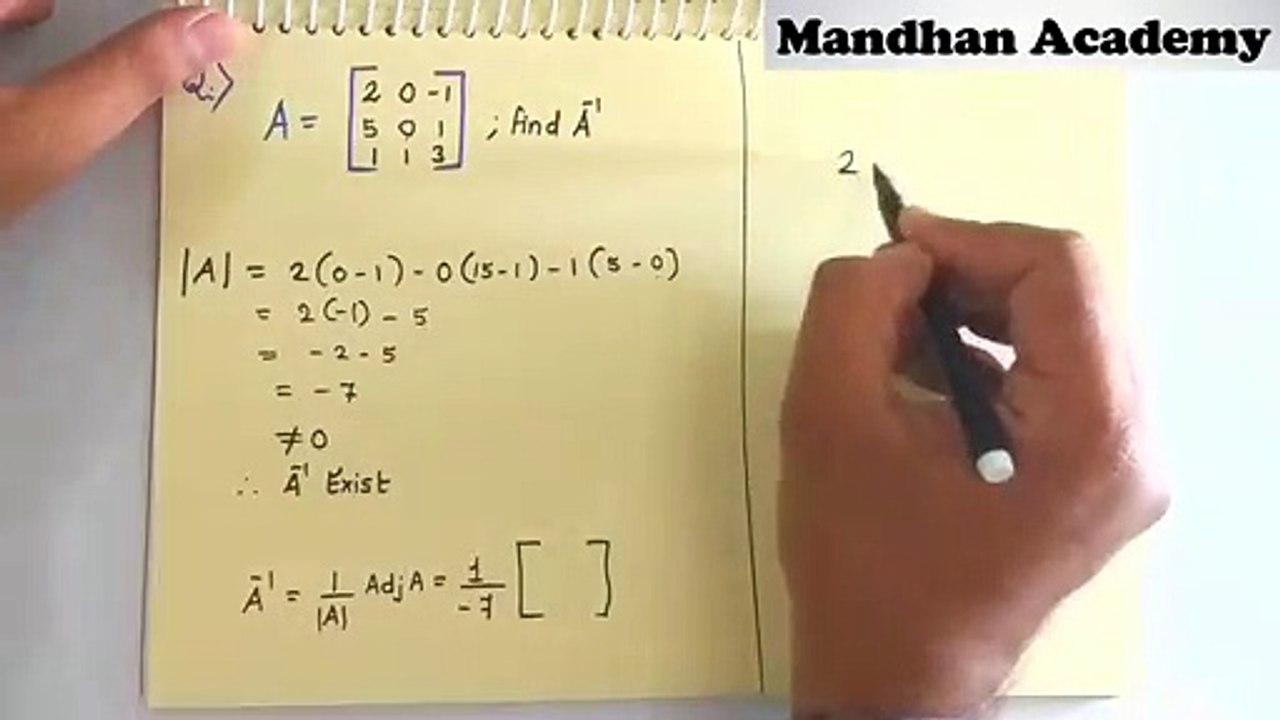 Mandhan Academy
Q.i) A = [2 0 -1
5 0 1
1 1 3] ; find A⁻¹
|A| = 2(0-1) - 0(15-1) - 1(5-0)
= 2(-1) - 5
= -2-5
= -7
≠0
∴ A⁻¹ Exist
A⁻¹ = 1/|A| Adj A = 1/-7 [ ]
2